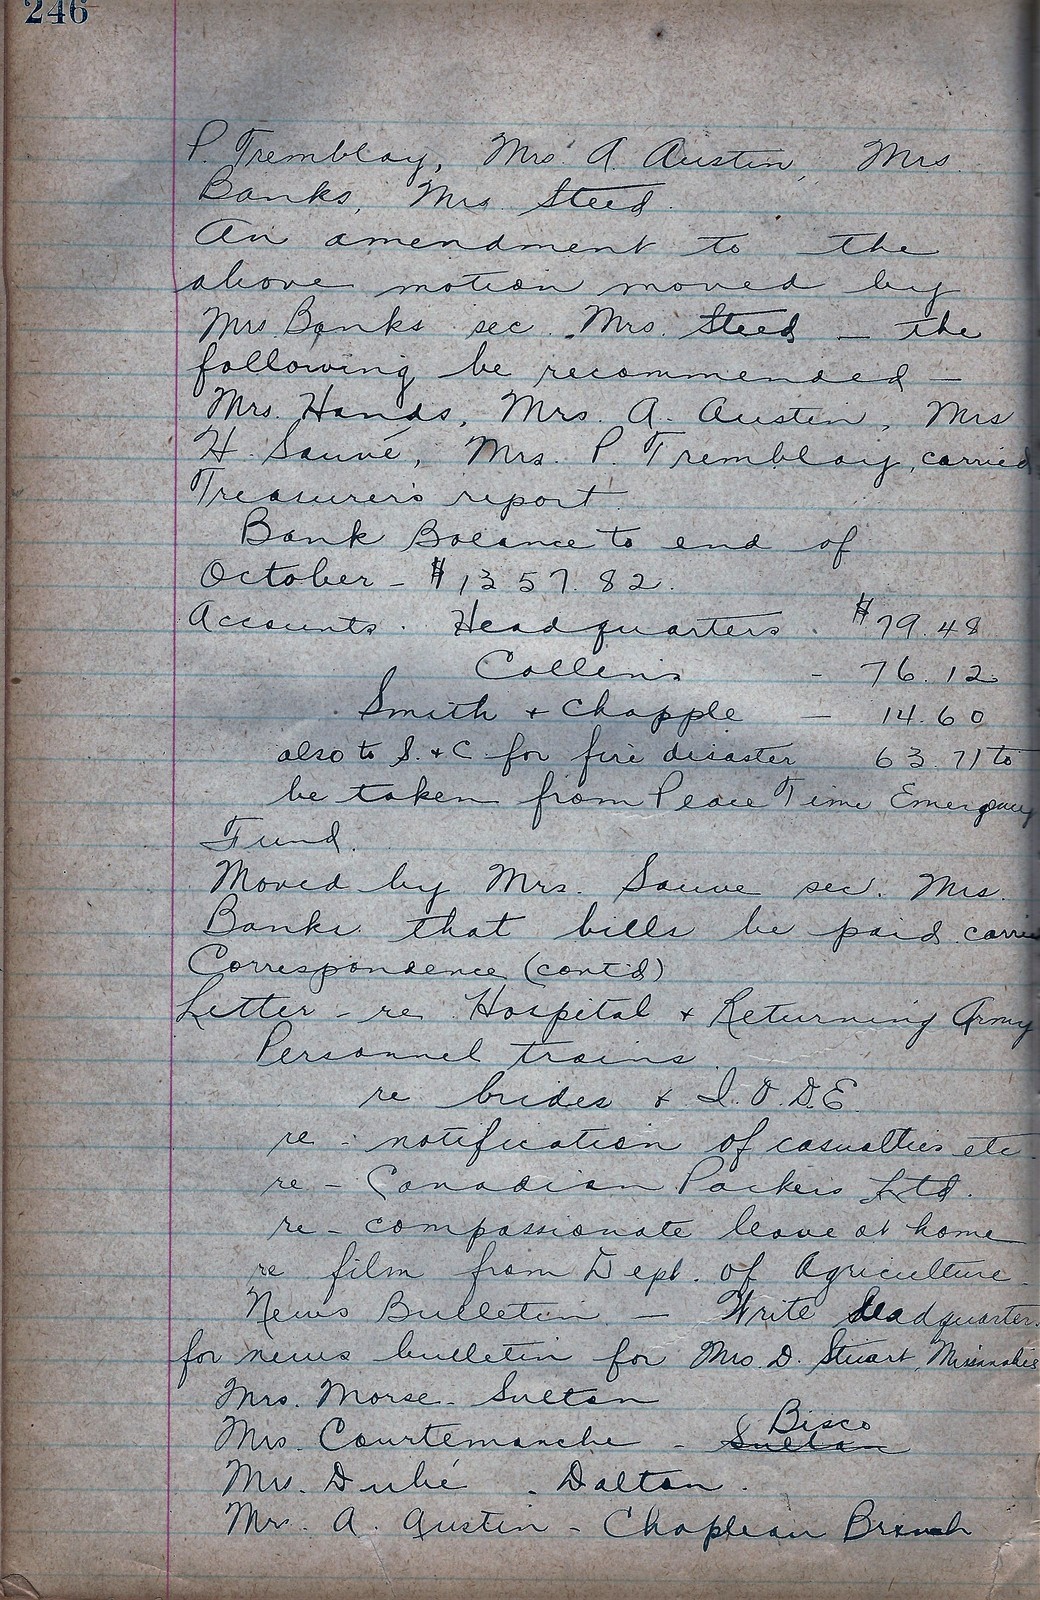 246
P. Tremblay, Mrs. A. Austin, Mrs.
Banks, Mrs. Steed.
An amendment to the
above motion moved by
Mrs Banks sec. Mrs. Steed — the
following be recommended —
Mrs. Hands, Mrs. A. Austin, Mrs
H. Sauvé, Mrs. P. Tremblay, carried
Treasurer's report.
Bank Balance to end of
October — $1357.82.
Accounts. Headquarters. $79.48
Collins — 76.12
Smith + Chapple — 14.60
also to S. + C. for fire disaster 63.71 to
be taken from Peace Time Emergency
Fund.
Moved by Mrs. Sauve sec. Mrs.
Banks that bills be paid. carrie
Correspondence (cont'd)
Letter - re Hospital + Returning Army
Personnel trains.
re brides & I.O.D.E.
re - notification of casualties etc.
re - Canadian Packers Ltd.
re - compassionate leave at home
re film from Dept. of Agriculture.
News Bulletin — Write Headquarters
for news bulletin for Mrs. D. Stuart, Missanabie
Mrs. Morse - Sultan
Mrs. Courtemanche - Sultan Bisco
Mrs. Dubé - Dalton.
Mrs. A. Austin - Chapleau Branch